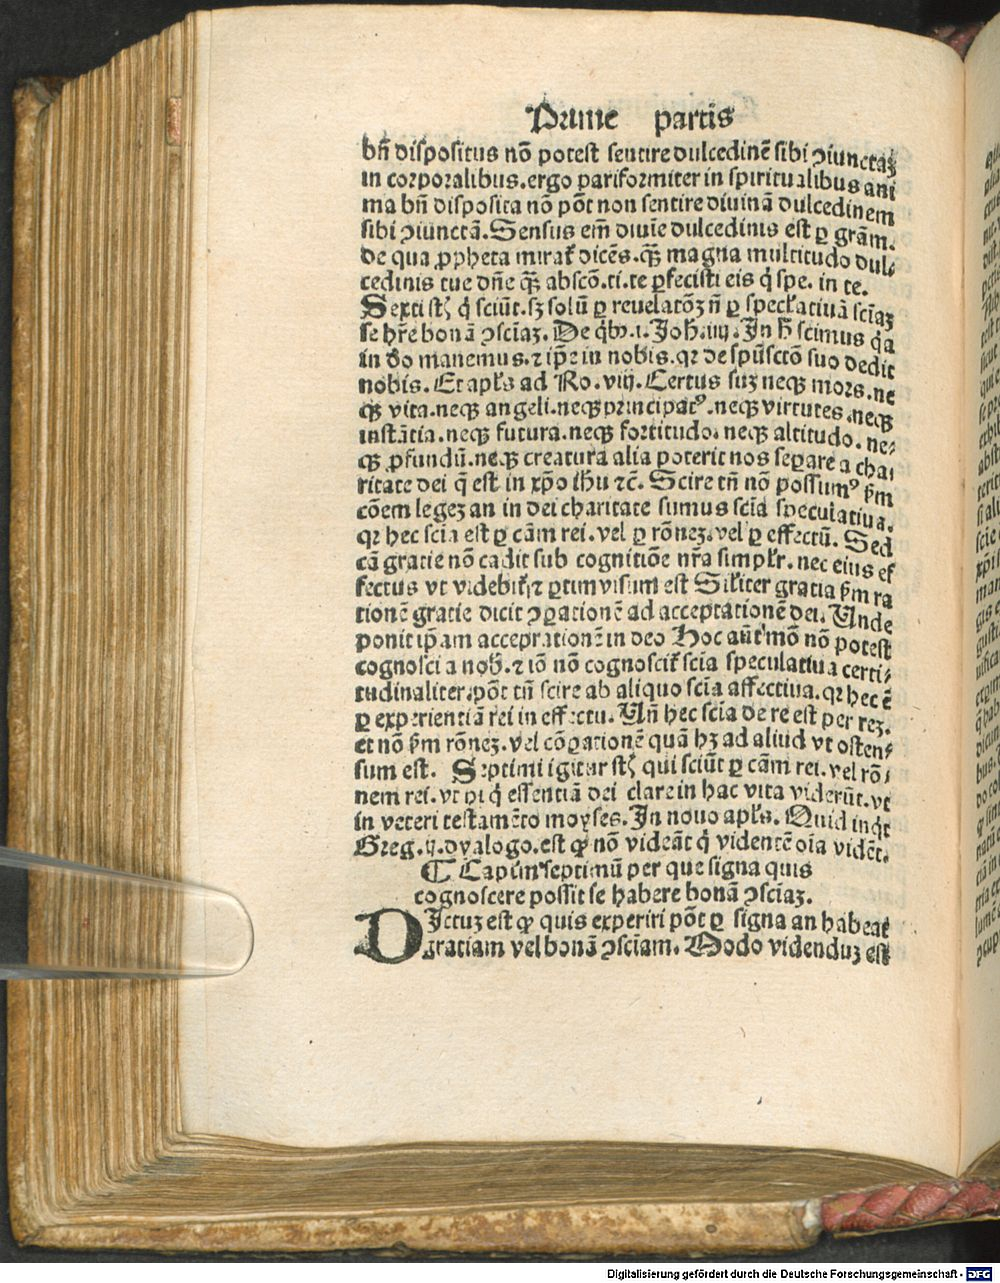 Prime partis
bn̄ dispositus nō potest sentire dulcedinē sibi ꝯiunctaꝫ
in corporalibus. ergo pariformiter in spiritualibus ani
ma bn̄ disposita nō pōt non sentire diuinā dulcedinem
sibi ꝯiunctā. Sensus em̄ diuīe dulcedinis est ꝑ grām.
de qua ꝓpheta mirat᷑ dicēs. qꝫ magna multitudo dul⸗
cedinis tue dn̄e qꝫ abscō. ti. te ꝑfecisti eis q̇ spe. in te.
Sexti st̄ q̇ sciūt. sꝫ solū ꝑ reuelatōꝫ n̄ ꝑ specl̓atiuā scīaꝫ
se hr̄e bonā ꝯscīaꝫ. De qḃꝰ .i. Joh̄. iiij. In h̄ scimus q̓a
in deo manemus. ⁊ ip̄e in nobis. qꝛ de spūsctō suo dedit
nobis. Et apl̓s ad Ro. viij. Certus suꝫ neqꝫ mors. ne
qꝫ vita. neqꝫ angeli. neqꝫ principatꝰ. neqꝫ virtutes. neqꝫ
instātia. neqꝫ futura. neqꝫ fortitudo. neqꝫ altitudo. ne⸗
qꝫ ꝓfundū. neqꝫ creatura alia poterit nos seꝑare a cha⸗
ritate dei q̄ est in xp̄o ih̄u ⁊c̄. Scire tn̄ nō possumꝰ ẜm
cōem legeꝫ an in dei charitate sumus scīa speculatiua.
qꝛ hec scīa est ꝑ cām rei. vel ꝑ rōneꝫ. vel ꝑ effectū. Sed
cā gratie nō cadit sub cognitiōe nr̄a simpl̓r. nec eius ef
fectus vt videbit᷑ ⁊ ꝑtim visum est Sil̓iter gratia ẜm ra
tionē gratie dicit ꝯꝑationē ad acceptationē dei. Unde
ponit ip̄am acceptationē in deo Hoc aūt mō nō potest
cognosci a nob̄. ⁊ iō nō cognoscit᷑ scīa speculatiua certi⸗
tudinaliter. pōt tn̄ scire ab aliquo scīa affectiua. qꝛ hec ē
ꝑ experientiā rei in effectu. Un̄ hec scīa de re est per reꝫ.
et nō ẜm rōneꝫ. vel cōꝑationē quā hꝫ ad aliud vt osten⸗
sum est. Septimi igitur st̄ qui sciūt ꝑ cām rei. vel rō⸗
nem rei. vt pi q̇ essentiā dei clare in hac vita viderūt. vt
in veteri testamēto moyses. In nouo apl̓s. Quid inq̇t
Greg. ij. dyalogo. est ꝙ nō videāt q̇ videntē oīa vidēt.
¶ Capl̓m septimū per que signa quis
cognoscere possit se habere bonā ꝯscīaꝫ.
DIctuꝫ est ꝙ quis experiri pōt ꝑ signa an habeat
gratiam vel bonā ꝯscīam. Modo videnduꝫ est
Digitalisierung gefördert durch die Deutsche Forschungsgemeinschaft - DFG